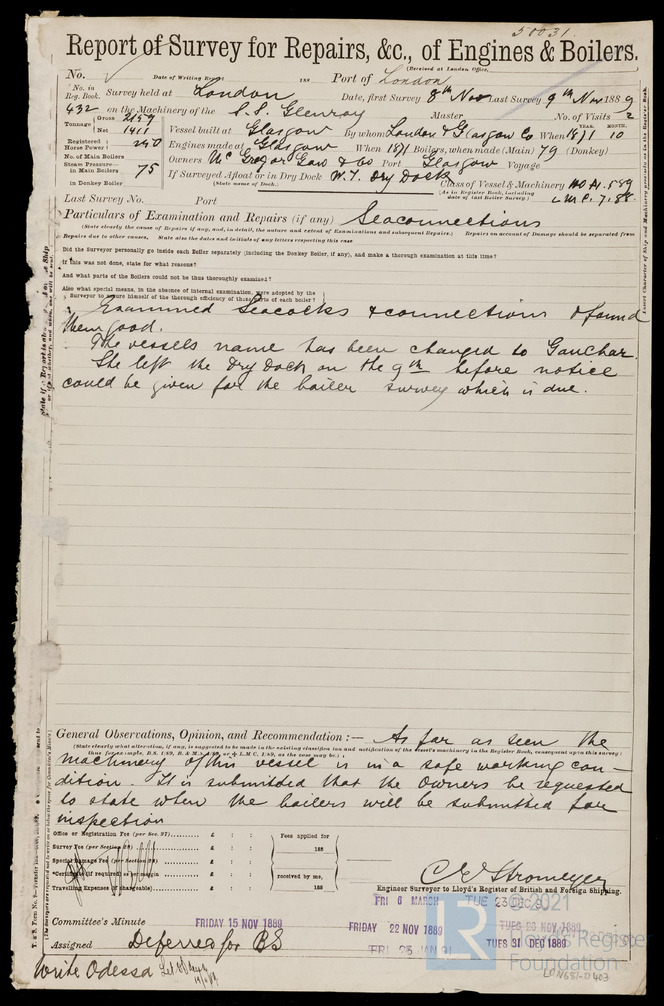 50031.
Report of Survey for Repairs, &c., of Engines & Boilers.
(Received at London Office,
No. Date of Writing Report 188 Port of London
No. in Reg. Book. Survey held at London Date, first Survey 8th Nov Last Survey 9th Nov 1889
432 on the Machinery of the S.S. Glenroy Master No. of Visits 2
Tonnage Gross 2159 Net 1411
Vessel built at Glasgow By whom London & Glasgow Co When 1871 YEAR. MONTH. 10
Registered Horse Power Engines made at Glasgow When 1871 Boilers, when made (Main) 79 (Donkey)
No. of Main Boilers Owners McGregor Gow & Co Port Glasgow Voyage
Steam Pressure— in Main Boilers 75 If Surveyed Afloat or in Dry Dock W.I. Dry Dock
(State name of Dock.)
in Donkey Boiler
Class of Vessel & Machinery
(As in Register Book, including date of last Boiler Survey.)
Last Survey No. Port
Particulars of Examination and Repairs (if any) Seaconnections
(State clearly the cause of Repairs if any, and, in detail, the nature and extent of Examinations and subsequent Repairs.) Repairs on account of Damage should be separated from
Repairs due to other causes. State also the dates and initials of any letters respecting this case
Did the Surveyor personally go inside each Boiler separately (including the Donkey Boiler, if any), and make a thorough examination at this time?
If this was not done, state for what reasons?
And what parts of the Boilers could not be thus thoroughly examined?
Also what special means, in the absence of internal examination, were adopted by the
Surveyor to assure himself of the thorough efficiency of those parts of each boiler?
Examined Seacocks & connections & found
them good.
The vessels name has been changed to Gauchar.
She left the Dry Dock on the 9th before notice
could be given for the boiler survey which is due.
General Observations, Opinion, and Recommendation :— As far as seen the
(State clearly what alteration, if any, is suggested to be made in the existing classification and notification of the vessel's machinery in the Register Book, consequent upon this survey:
thus for example, B.S. 1/89, B. & M.S. 1/89, or L.M.C. 1/89, as the case may be.)
machinery of this vessel is in a safe working con-
dition. It is submitted that the Owners be requested
to state when the boilers will be submitted for
inspection
Office or Registration Fee (per Sec. 27) £ : :
Survey Fee (per Section 28) £ : :
Special Damage Fee (per Section 28) £ : :
*Certificate (if required) as per margin £ : :
Travelling Expenses (if chargeable) £ : :
Fees applied for
188
received by me,
188
C E Stromeyer
Engineer Surveyor to Lloyd's Register of British and Foreign Shipping.
FRI 6 MARCH TUE 23 DEC 9
Committee's Minute FRIDAY 15 NOV 1889 FRIDAY 22 NOV 1889 TUES 26 NOV 1889
Assigned Deferred for BS FRI 23 JAN 91 TUES 31 DEC 1889
Write Odessa
LR
© 2021
Lloyd's Register
Foundation
LON651-0403